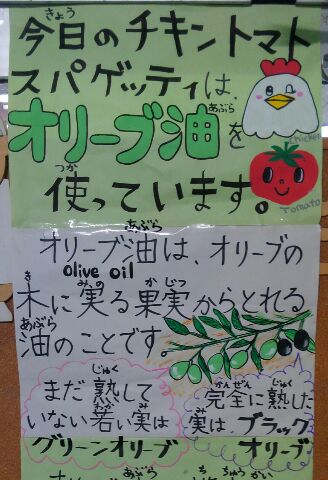 きょう
今日のチキントマト
スパゲッティは、
あぶら
オリーブ油を
つか
使っています。
chicken
Tomato
あぶら
オリーブ油は、オリーブの
olive oil
き みの かじつ
木に実る果実からとれる
あぶら
油のことです。
じゅく
まだ熟して
わか み
いない若い実は
グリーンオリーブ
かんぜん じゅく
完全に熟した
み
実は、ブラック
オリーブ
あぶら
ちゅうかい